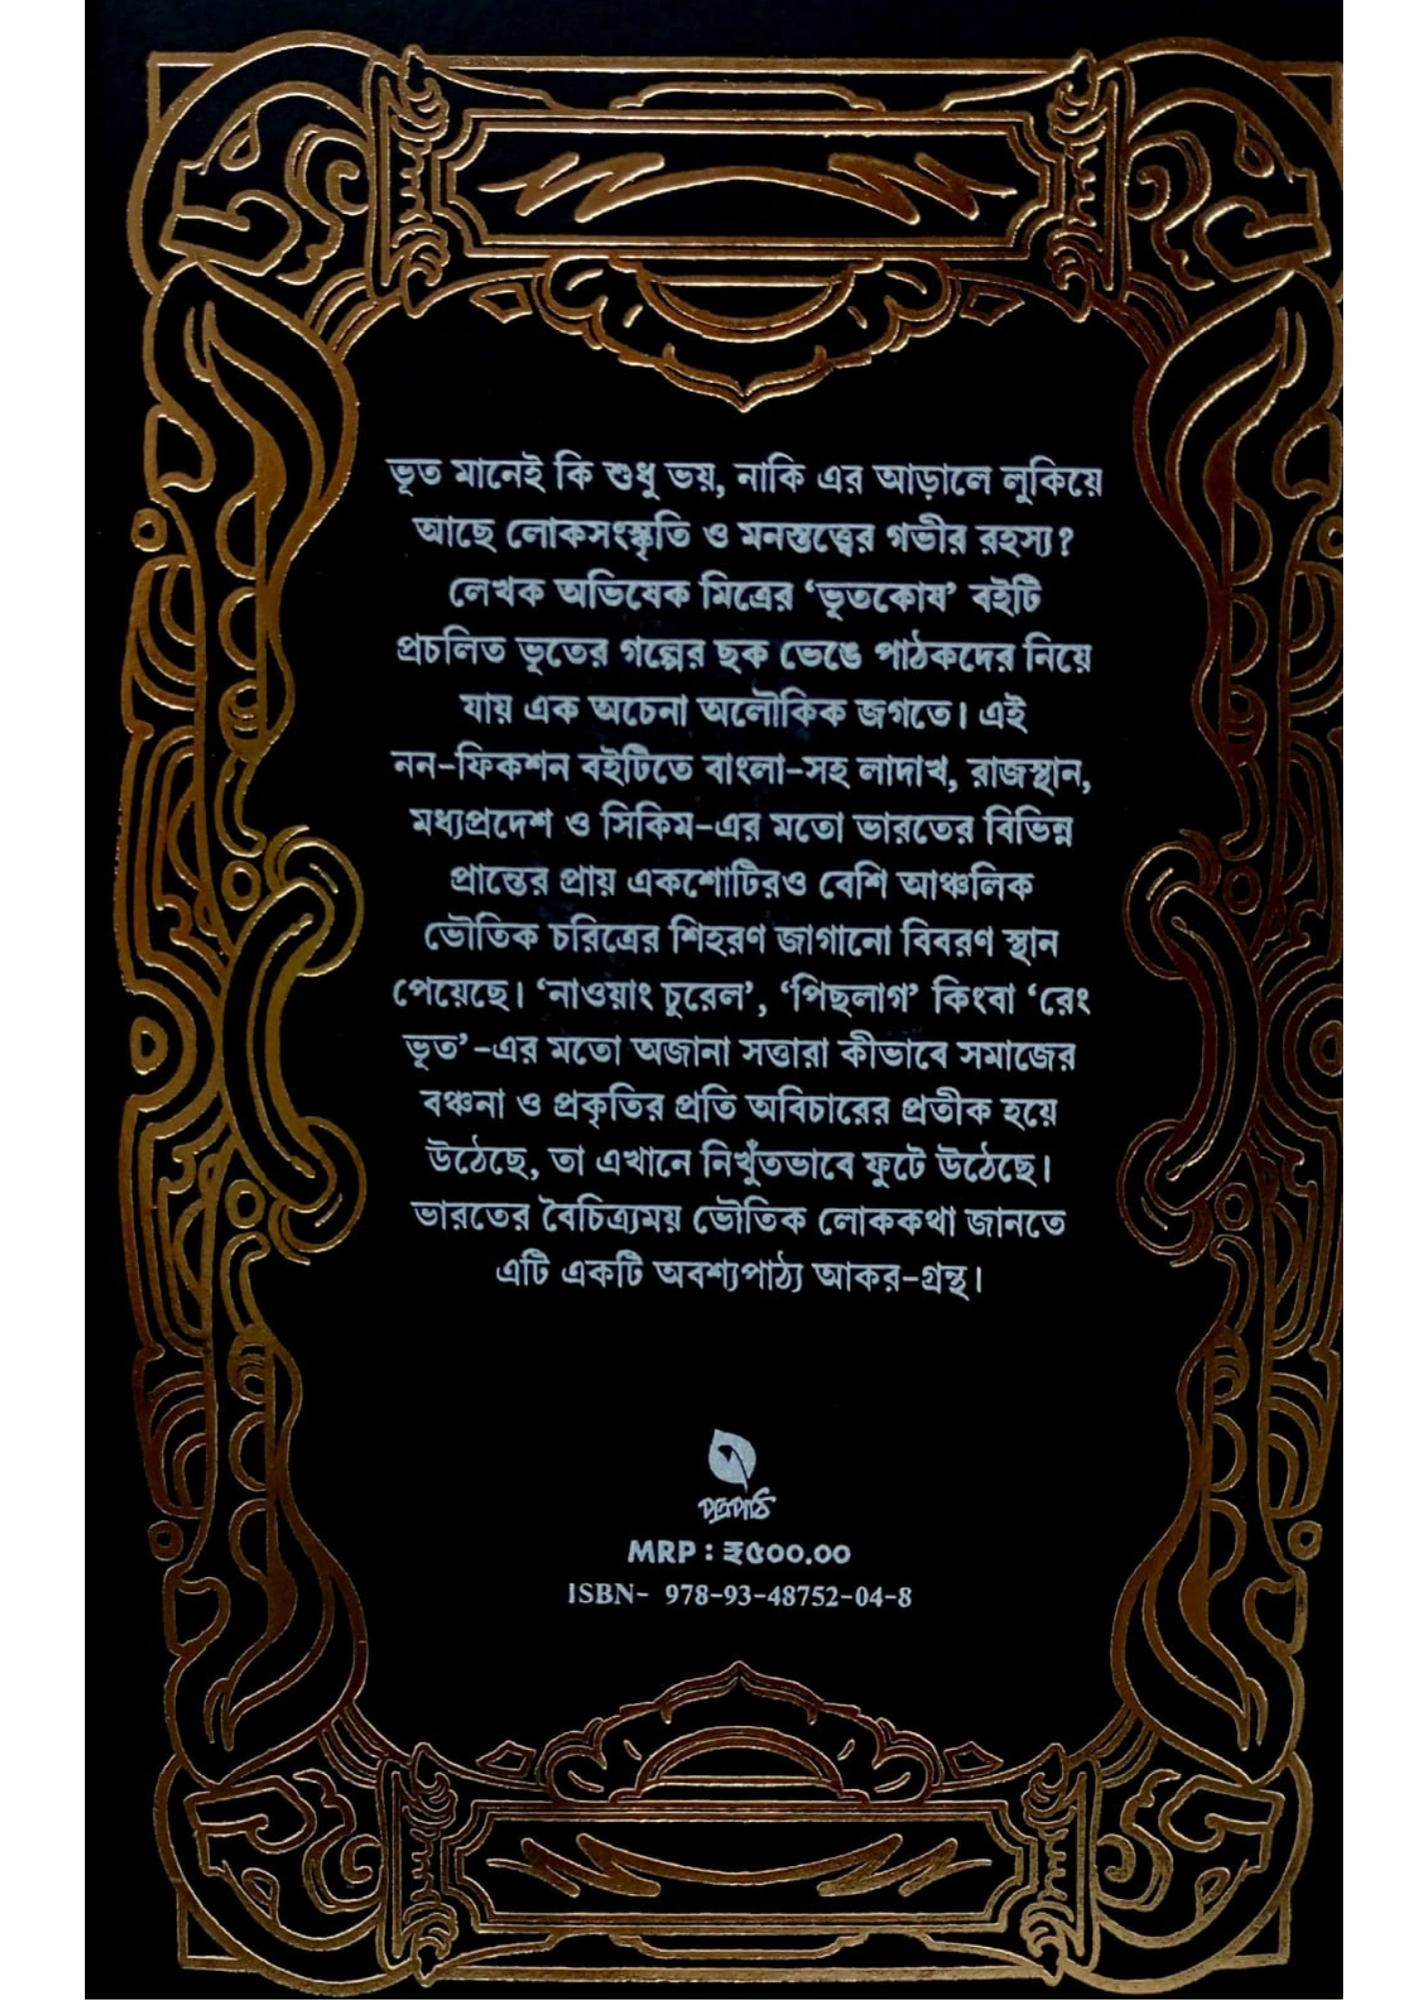 ভূত মানেই কি শুধু ভয়, নাকি এর আড়ালে লুকিয়ে
আছে লোকসংস্কৃতি ও মনস্তত্ত্বের গভীর রহস্য?
লেখক অভিষেক মিত্রের ‘ভূতকোষ’ বইটি
প্রচলিত ভূতের গল্পের ছক ভেঙে পাঠকদের নিয়ে
যায় এক অচেনা অলৌকিক জগতে। এই
নন-ফিকশন বইটিতে বাংলা-সহ লাদাখ, রাজস্থান,
মধ্যপ্রদেশ ও সিকিম-এর মতো ভারতের বিভিন্ন
প্রান্তের প্রায় একশোটিরও বেশি আঞ্চলিক
ভৌতিক চরিত্রের শিহরণ জাগানো বিবরণ স্থান
পেয়েছে। ‘নাওয়াং চুরেল’, ‘পিছলাগ’ কিংবা ‘রেং
ভূত’-এর মতো অজানা সত্তারা কীভাবে সমাজের
বঞ্চনা ও প্রকৃতির প্রতি অবিচারের প্রতীক হয়ে
উঠেছে, তা এখানে নিখুঁতভাবে ফুটে উঠেছে।
ভারতের বৈচিত্র্যময় ভৌতিক লোককথা জানতে
এটি একটি অবশ্যপাঠ্য আকর-গ্রন্থ।
পত্রপাঠ
MRP : ₹৫০০.০০
ISBN- 978-93-48752-04-8